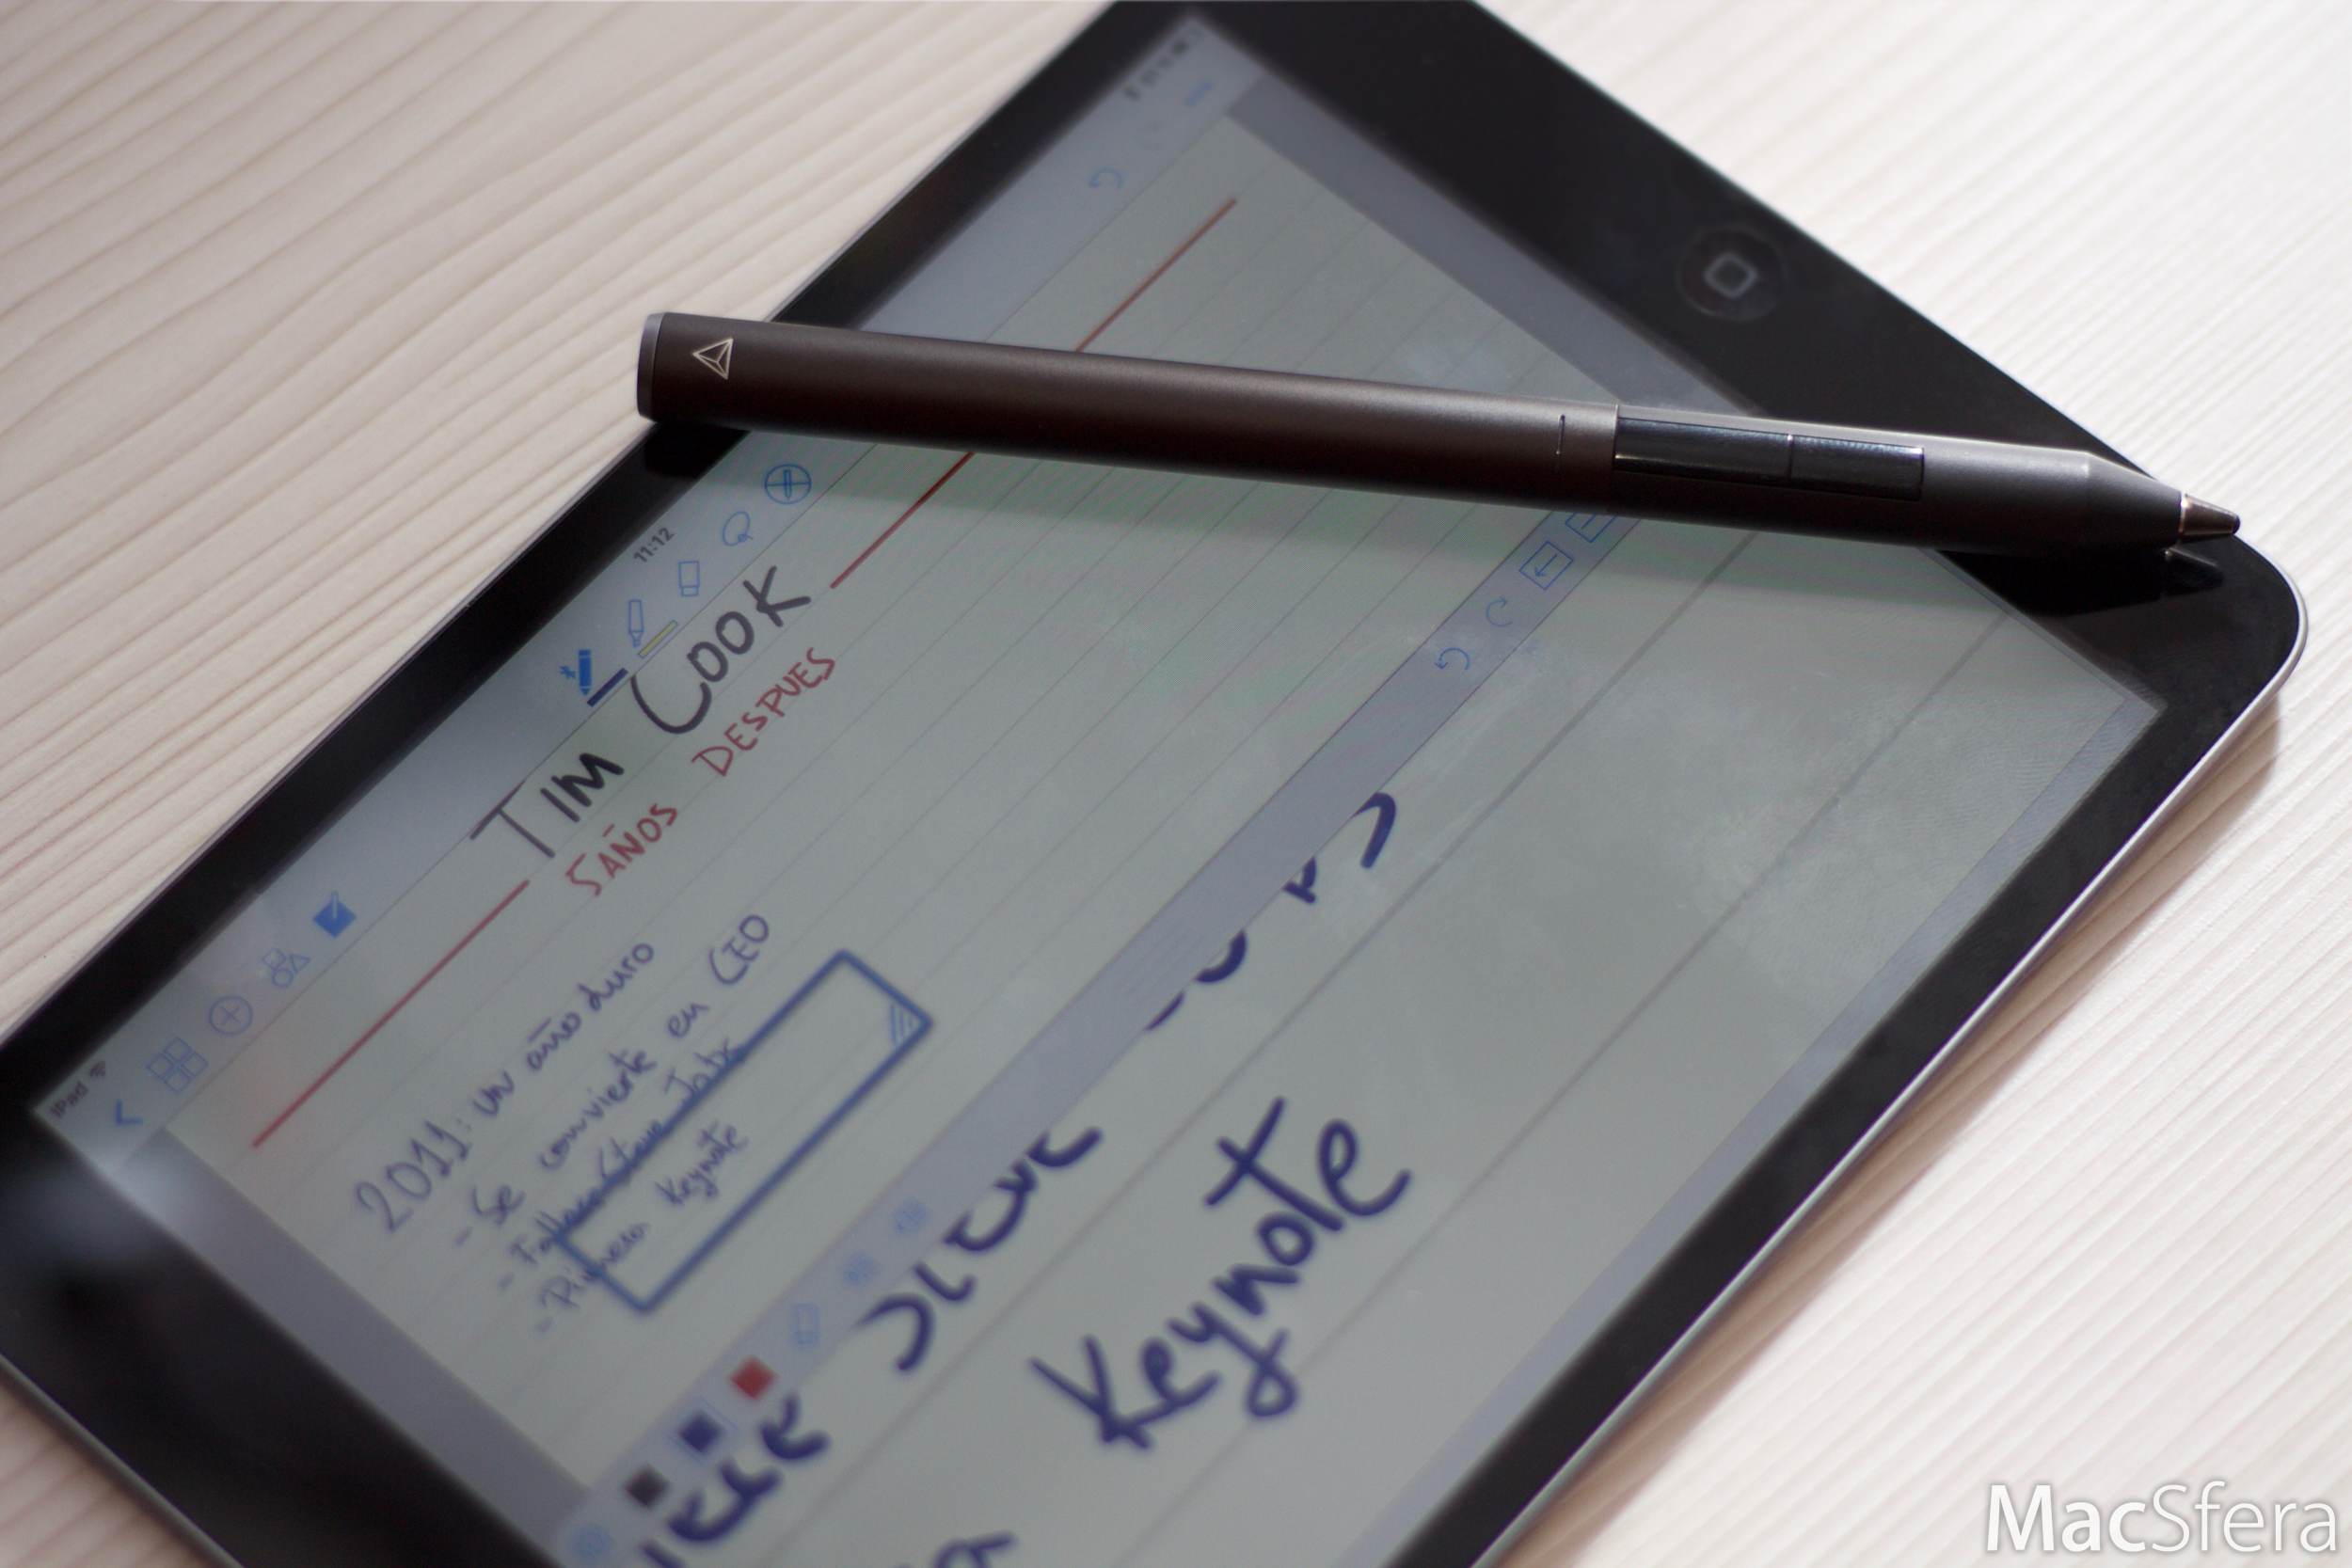 iPad 11:12
TIM COOK
5 AÑOS DESPUES
2011: un año duro
- Se convierte en CEO
- Fallece Steve Jobs
- Primera Keynote
Keynote
MacSfera